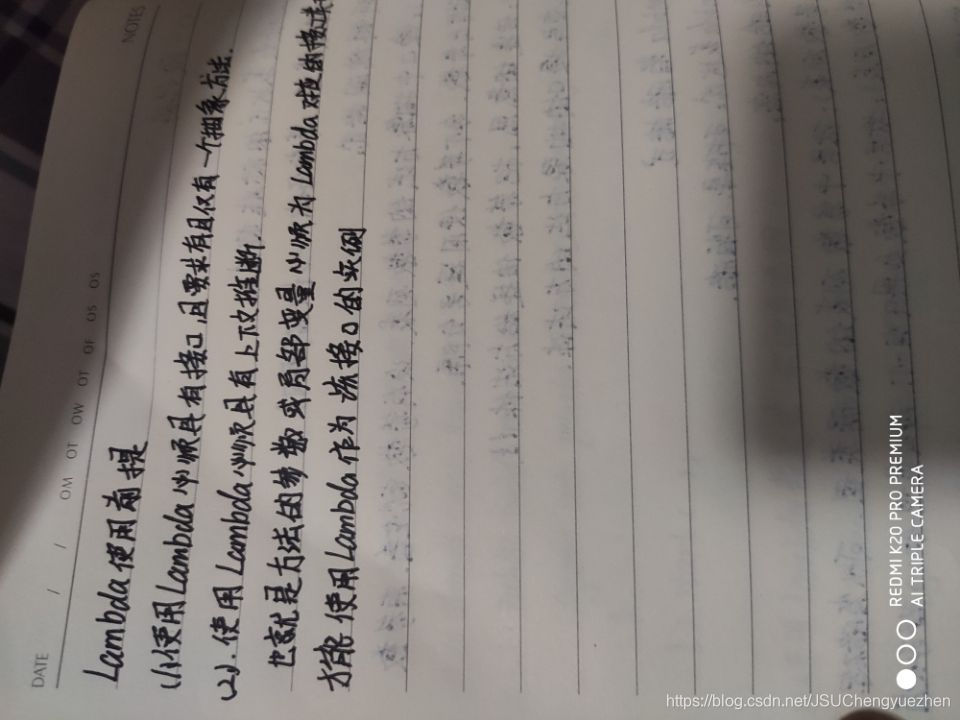 NOTES
DATE / /
OM OT OW OT OF OS OS
Lambda使用前提
(1)使用Lambda必须具有接口,且要求有且仅有一个抽象方法.
(2).使用Lambda必须具有上下文推断.
也就是方法的参数或局部变量必须为Lambda对应的接口类
才能使用Lambda作为该接口的实例
REDMI K20 PRO PREMIUM
AI TRIPLE CAMERA
https://blog.csdn.net/JSUChengyuezhen